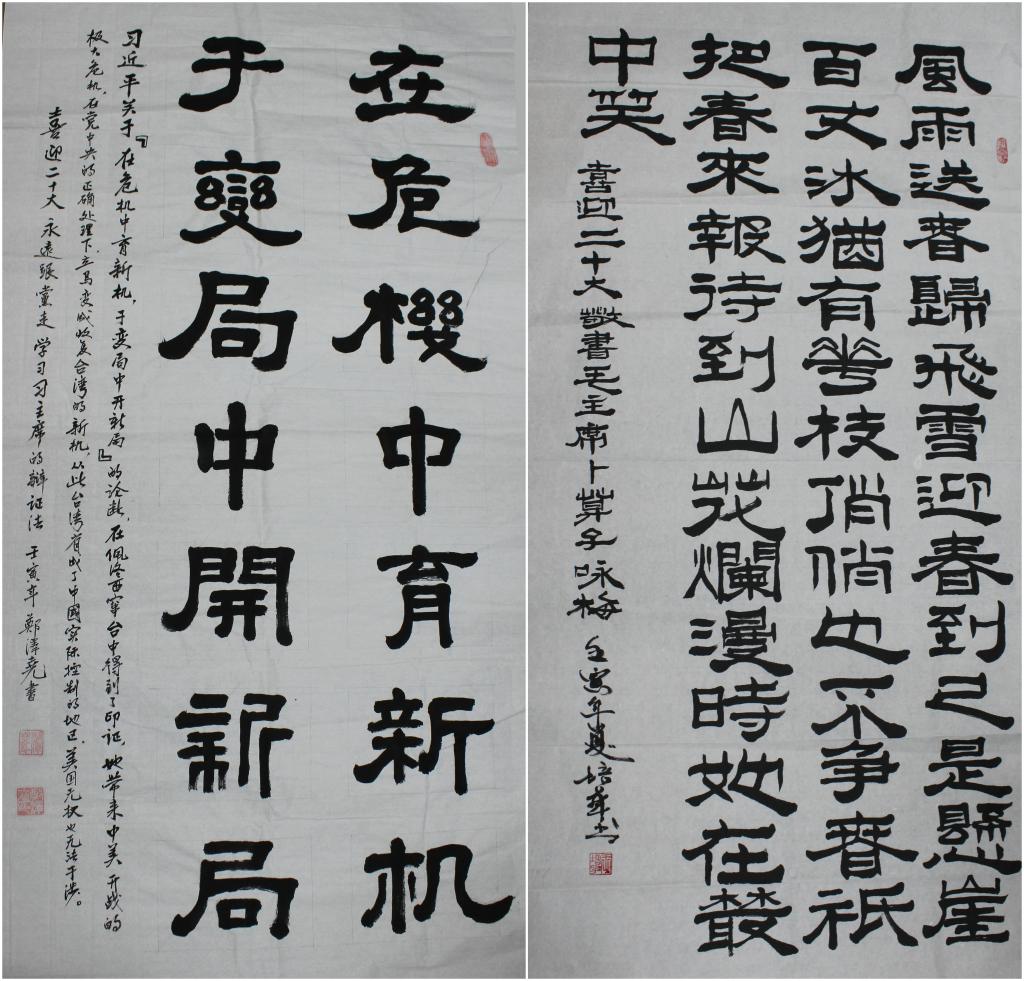 在危機中育新机
于變局中開新局
习近平关于『在危机中育新机，于变局中开新局』的论断，在佩洛西窜台中得到了印证，她带来中美开战的
极大危机，在党中央的正确处理下，立马变成收复台湾的新机，从此台湾省成了中國实际控制的地区，美国无权也无法干涉。
喜迎二十大 永遠跟黨走 学习习主席的辩证法 壬寅年 鄭澤堯書
風雨送春歸飛雪迎春到已是懸崖
百丈冰猶有華枝俏俏也不爭春祇
把春來報待到山花爛漫時她在叢
中笑 喜迎二十大敬書毛主席卜算子咏梅 壬寅年夏培華书